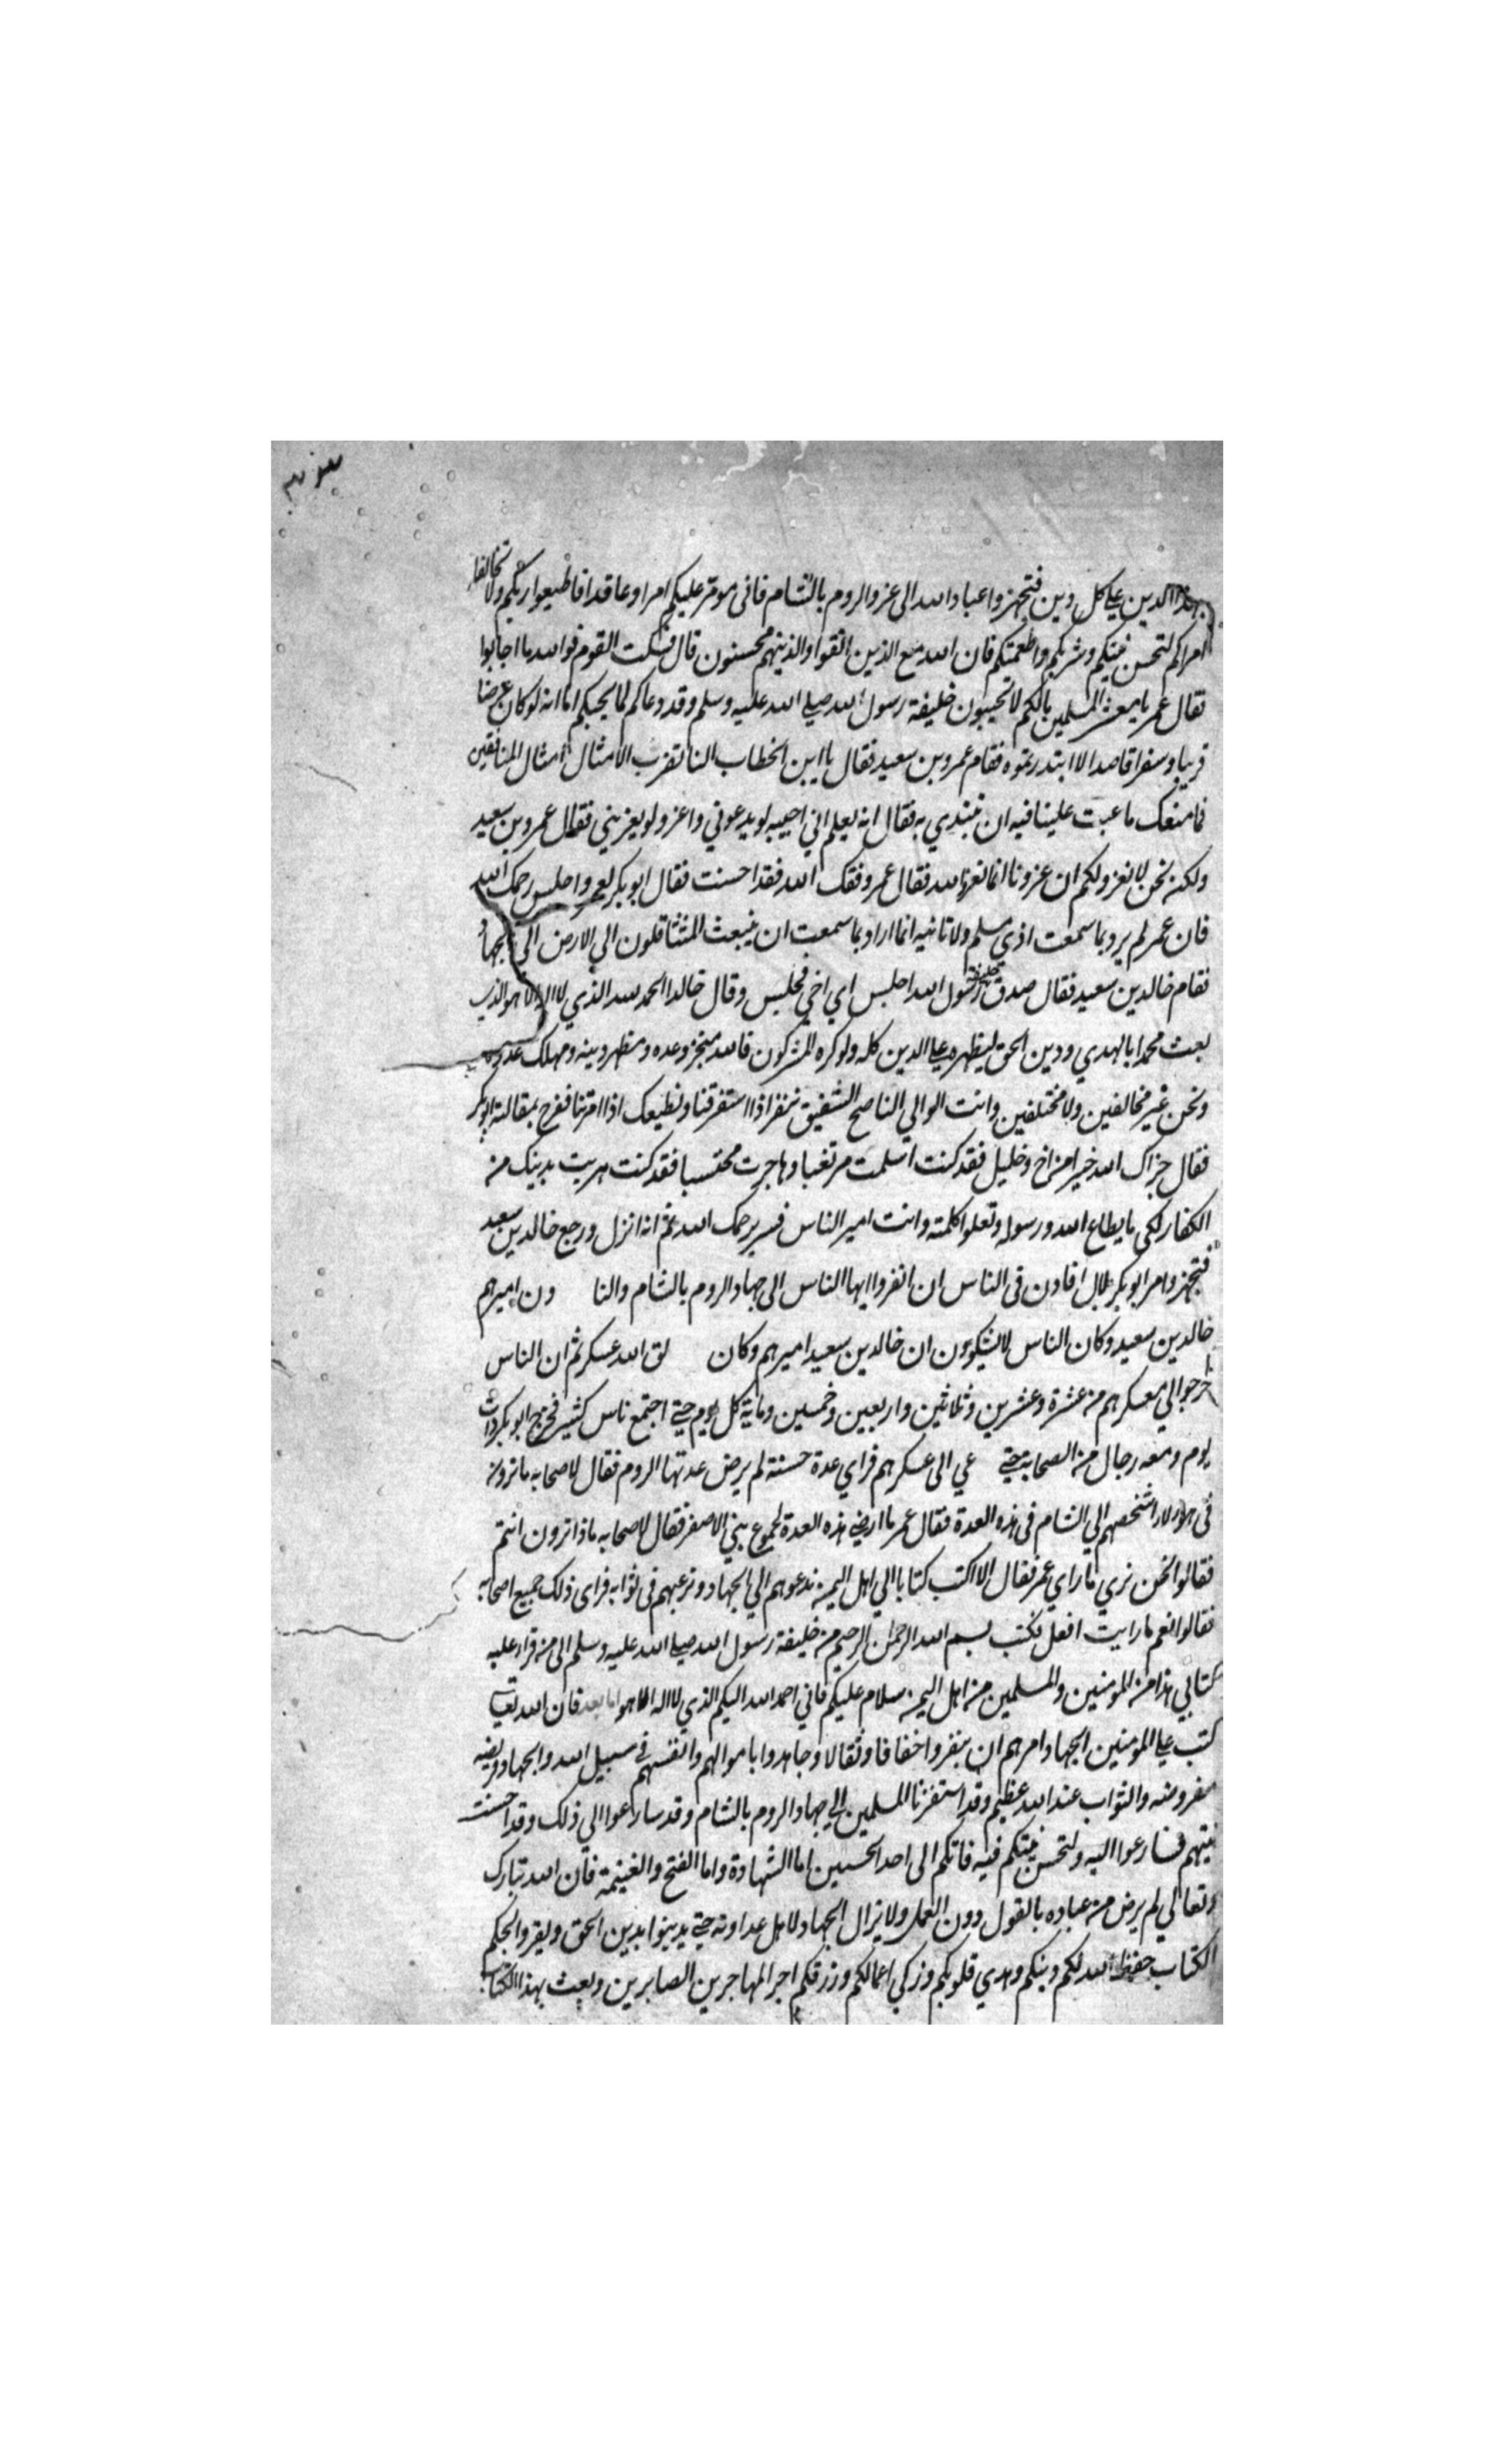 بهذا الدين على كل دين فتجهزوا عباد الله الى غزو الروم بالشام فانى مومر عليكم امرا وعاقدا فاطيعوا ربكم ولا تخالفوا
امراكم لتحسن نيتكم وشربكم واطعمتكم فان الله مع الذين اتقوا والذينهم محسنون قال فسكت القوم فوالله ما اجابوا
فقال عمر يا معشر المسلمين مالكم لا تجيبون خليفة رسول الله صلى الله عليه وسلم وقد دعاكم لما يحييكم اما انه لو كان عرضا
قريبا وسفرا قاصدا لا ابتدرتموه فقام عمرو بن سعيد فقال يا ابن الخطاب النا تضرب الامثال امثال المنافقين
فما منعك ما عبت علينا فيه ان تبتدي به فقال انه يعلم اني اجيبه لو يدعوني واغزو لو يغزيني فقال عمرو بن سعيد
ولكن نحن لا نغزو لكم ان غزونا انما نغزو لله فقال عمر وفقك الله فقد احسنت فقال ابو بكر لعمرو اجلس رحمك الله
فان عمر لم يرد بما سمعت اذى مسلم ولا تانيبه انما اراد بما سمعت ان ينبعث المتثاقلون الي الارض الى الجهاد
فقام خالد بن سعيد فقال صدق خليفة رسول الله اجلس اي اخي فجلس وقال خالد الحمد لله الذي لا اله الا هو الذي
بعث محمدا بالهدي ودين الحق ليظهره على الدين كله ولو كره المشركون فالله منجز وعده ومظهر دينه ومهلك عدوه
ونحن غير مخالفين ولا مختلفين وانت الوالي الناصح الشفيق ننفر اذا استنفرتنا ونطيعك اذا امرتنا ففرح بمقالته ابو بكر
فقال جزاك الله خيرا من اخ وخليل فقد كنت اسلمت مرتغبا وهاجرت محتسبا فقد كنت هربت بدينك من
الكفار لكى ما يطاع الله ورسوله وتعلوا كلمته وانت امير الناس فسر يرحمك الله ثم انه انزل ورجع خالد بن سعيد
فتجهز وامر ابو بكر بلالا فاذن فى الناس ان انفروا ايها الناس الى جهاد الروم بالشام والنا ون اميرهم
خالد بن سعيد وكان الناس لا يشكون ان خالد بن سعيد اميرهم وكان لق الله عسكر ثم ان الناس
خرجوا الي معسكرهم من عشرة وعشرين وثلاثين واربعين وخمسين وماية كل يوم حتى اجتمع ناس كثير فخرج ابو بكر ذات
يوم ومعه رجال من الصحابة حتى عي الى عسكرهم فراي عدة حسنة لم يرض عدتها الروم فقال لاصحابه ما ترون
فى هؤلاء اشخصهم الي الشام فى هذه العدة فقال عمر ما ارضى هذه العدة لجموع بني الاصفر فقال لاصحابه ماذا ترون انتم
فقالوا نحن نري ما راي عمر فقال الا اكتب كتابا الي اهل اليمن ندعوهم الي الجهاد ونرغبهم فى ثوابه فراى ذلك جميع اصحابه
فقالوا نعم ما رايت افعل فكتب بسم الله الرحمن الرحيم من خليفة رسول الله صلى الله عليه وسلم الى من قرا عليه
كتابي هذا من المومنين والمسلمين من اهل اليمن سلام عليكم فاني احمد الله اليكم الذي لا اله الا هو اما بعد فان الله تعالى
كتب على المومنين الجهاد وامرهم ان ينفروا خفافا وثقالا وجاهدوا باموالهم وانفسهم في سبيل الله والجهاد فريضه
مفروضه والثواب عند الله عظيم وقد استنفرنا المسلمين الى جهاد الروم بالشام وقد سارعوا الي ذلك وقد احسنت
نيتهم فسارعوا اليه ولتحسن نيتكم فيه فانكم الى احد الحسنيين اما الشهادة واما الفتح والغنيمة فان الله تبارك
وتعالي لم يرض من عباده بالقول دون العمل ولا يزال الجهاد لاهل عداوته حتى يدينوا بدين الحق ويقروا لحكم
الكتاب حفظ الله لكم دينكم وهدي قلوبكم وزكي اعمالكم ورزقكم اجر المهاجرين الصابرين وبعث بهذا الكتاب